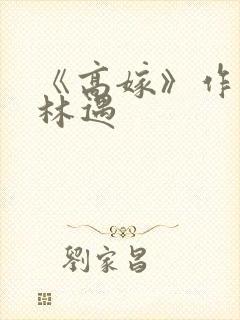 《高嫁》作
林遇
劉家昌